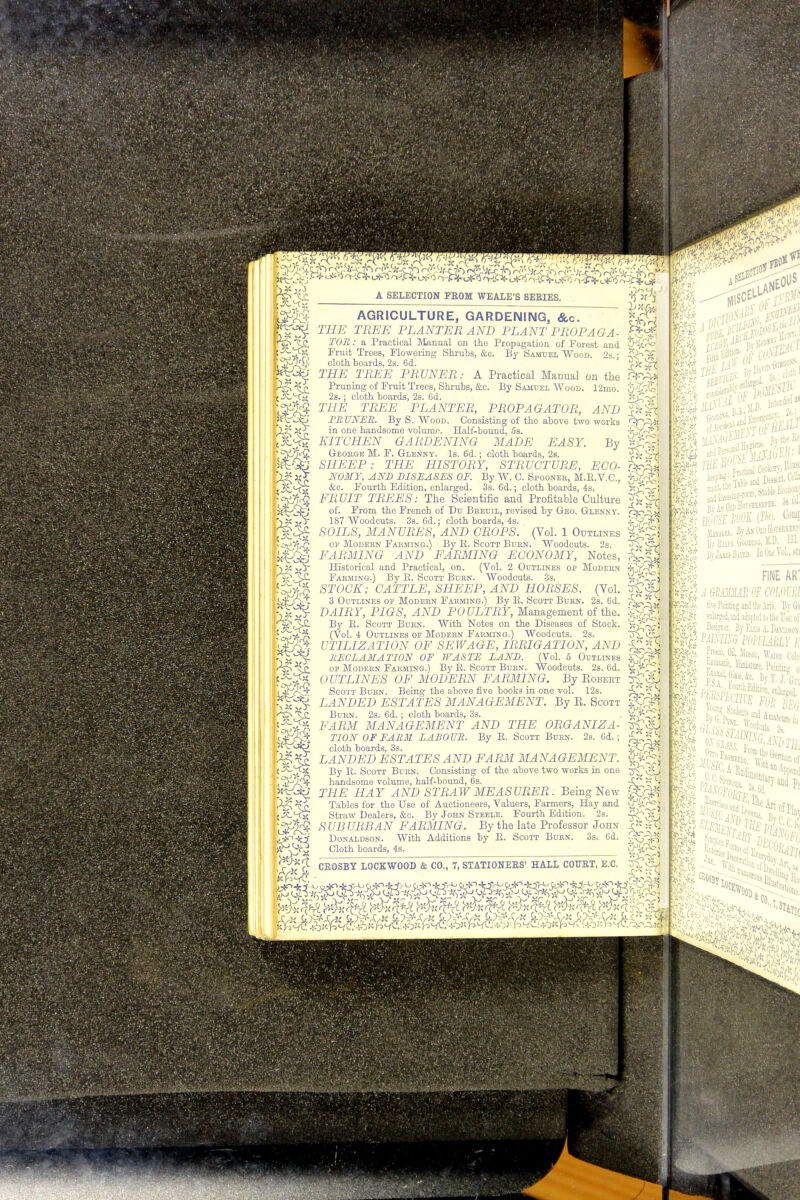 A SELECTION FROM WEALE'S SERIES.
AGRICULTURE, GARDENING, &c.
THE TREE PLANTER AND PLANT PROPAGA-
TOR: a Practical Manual on the Propagation of Forest and
Fruit Trees, Flowering Shrubs, &c. By SAMUEL WOOD. 2s.;
cloth boards, 2s. 6d.
THE TREE PRUNER: A Practical Manual on the
Pruning of Fruit Trees, Shrubs, &c. By SAMUEL WOOD. 12mo.
2s.; cloth boards, 2s. 6d.
THE TREE PLANTER, PROPAGATOR, AND
PRUNER. By S. WOOD. Consisting of the above two works
in one handsome volume. Half-bound, 5s.
KITCHEN GARDENING MADE EASY. By
GEORGE M. F. GLENNY. 1s. 6d.; cloth boards, 2s.
SHEEP: THE HISTORY, STRUCTURE, ECO-
NOMY, AND DISEASES OF. By W. C. SPOONER, M.R.V.C.,
&c. Fourth Edition, enlarged. 3s. 6d.; cloth boards, 4s.
FRUIT TREES: The Scientific and Profitable Culture
of. From the French of DU BREUIL, revised by GEO. GLENNY.
187 Woodcuts. 3s. 6d.; cloth boards, 4s.
SOILS, MANURES, AND CROPS. (Vol. 1 OUTLINES
OF MODERN FARMING.) By R. SCOTT BURN. Woodcuts. 2s.
FARMING AND FARMING ECONOMY, Notes,
Historical and Practical, on. (Vol. 2 OUTLINES OF MODERN
FARMING.) By R. SCOTT BURN. Woodcuts. 3s.
STOCK; CATTLE, SHEEP, AND HORSES. (Vol.
3 OUTLINES OF MODERN FARMING.) By R. SCOTT BURN. 2s. 6d.
DAIRY, PIGS, AND POULTRY, Management of the.
By R. SCOTT BURN. With Notes on the Diseases of Stock.
(Vol. 4 OUTLINES OF MODERN FARMING.) Woodcuts. 2s.
UTILIZATION OF SEWAGE, IRRIGATION, AND
RECLAMATION OF WASTE LAND. (Vol. 5 OUTLINES
OF MODERN FARMING.) By R. SCOTT BURN. Woodcuts. 2s. 6d.
OUTLINES OF MODERN FARMING. By ROBERT
SCOTT BURN. Being the above five books in one vol. 12s.
LANDED ESTATES MANAGEMENT. By R. SCOTT
BURN. 2s. 6d.; cloth boards, 3s.
FARM MANAGEMENT AND THE ORGANIZA-
TION OF FARM LABOUR. By R. SCOTT BURN. 2s. 6d.;
cloth boards, 3s.
LANDED ESTATES AND FARM MANAGEMENT.
By R. SCOTT BURN. Consisting of the above two works in one
handsome volume, half-bound, 6s.
THE HAY AND STRAW MEASURER. Being New
Tables for the Use of Auctioneers, Valuers, Farmers, Hay and
Straw Dealers, &c. By JOHN STEELE. Fourth Edition. 2s.
SUBURBAN FARMING. By the late Professor JOHN
DONALDSON. With Additions by R. SCOTT BURN. 3s. 6d.
Cloth boards, 4s.
CROSBY LOCKWOOD & CO., 7, STATIONERS' HALL COURT, E.C.
A SELECTION FROM
MISCELLANEOUS
HOUSE BOOK (The).
FINE AR
A GRAMMAR OF COLOUR
PAINTING POPULARLY
PERSPECTIVE FOR
CROSBY LOCKWOOD & CO., 7, STAT